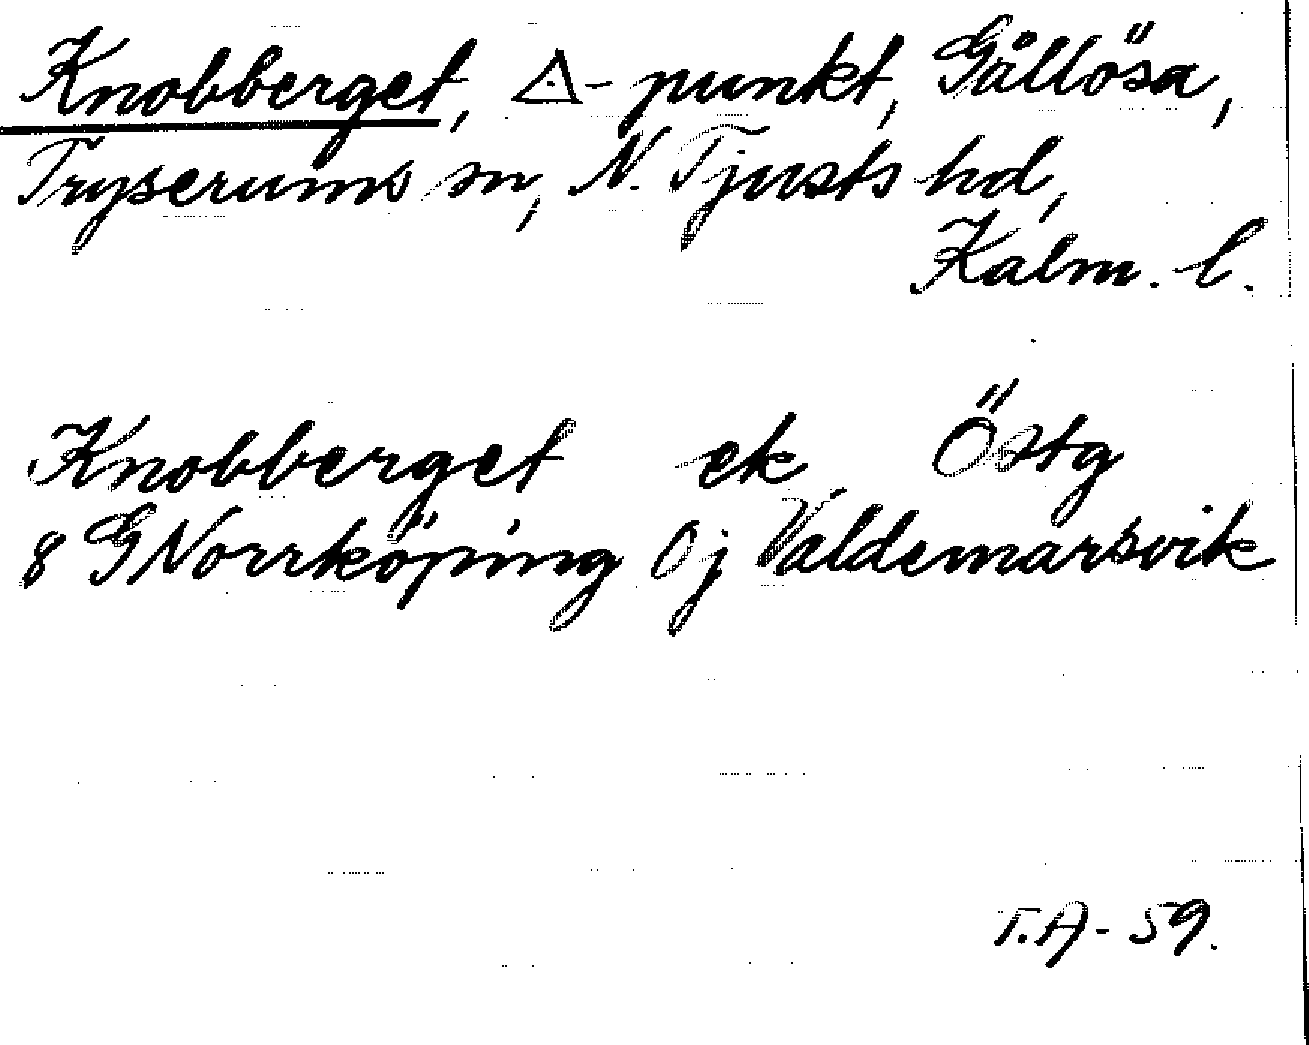 Knobberget, △-punkt, Gållösa,
Tryserums sn, N. Tjusts hd,
Kalm. l.
Knobberget ek Östg
8 G Norrköping 0j Valdemarsvik
T.A-59.